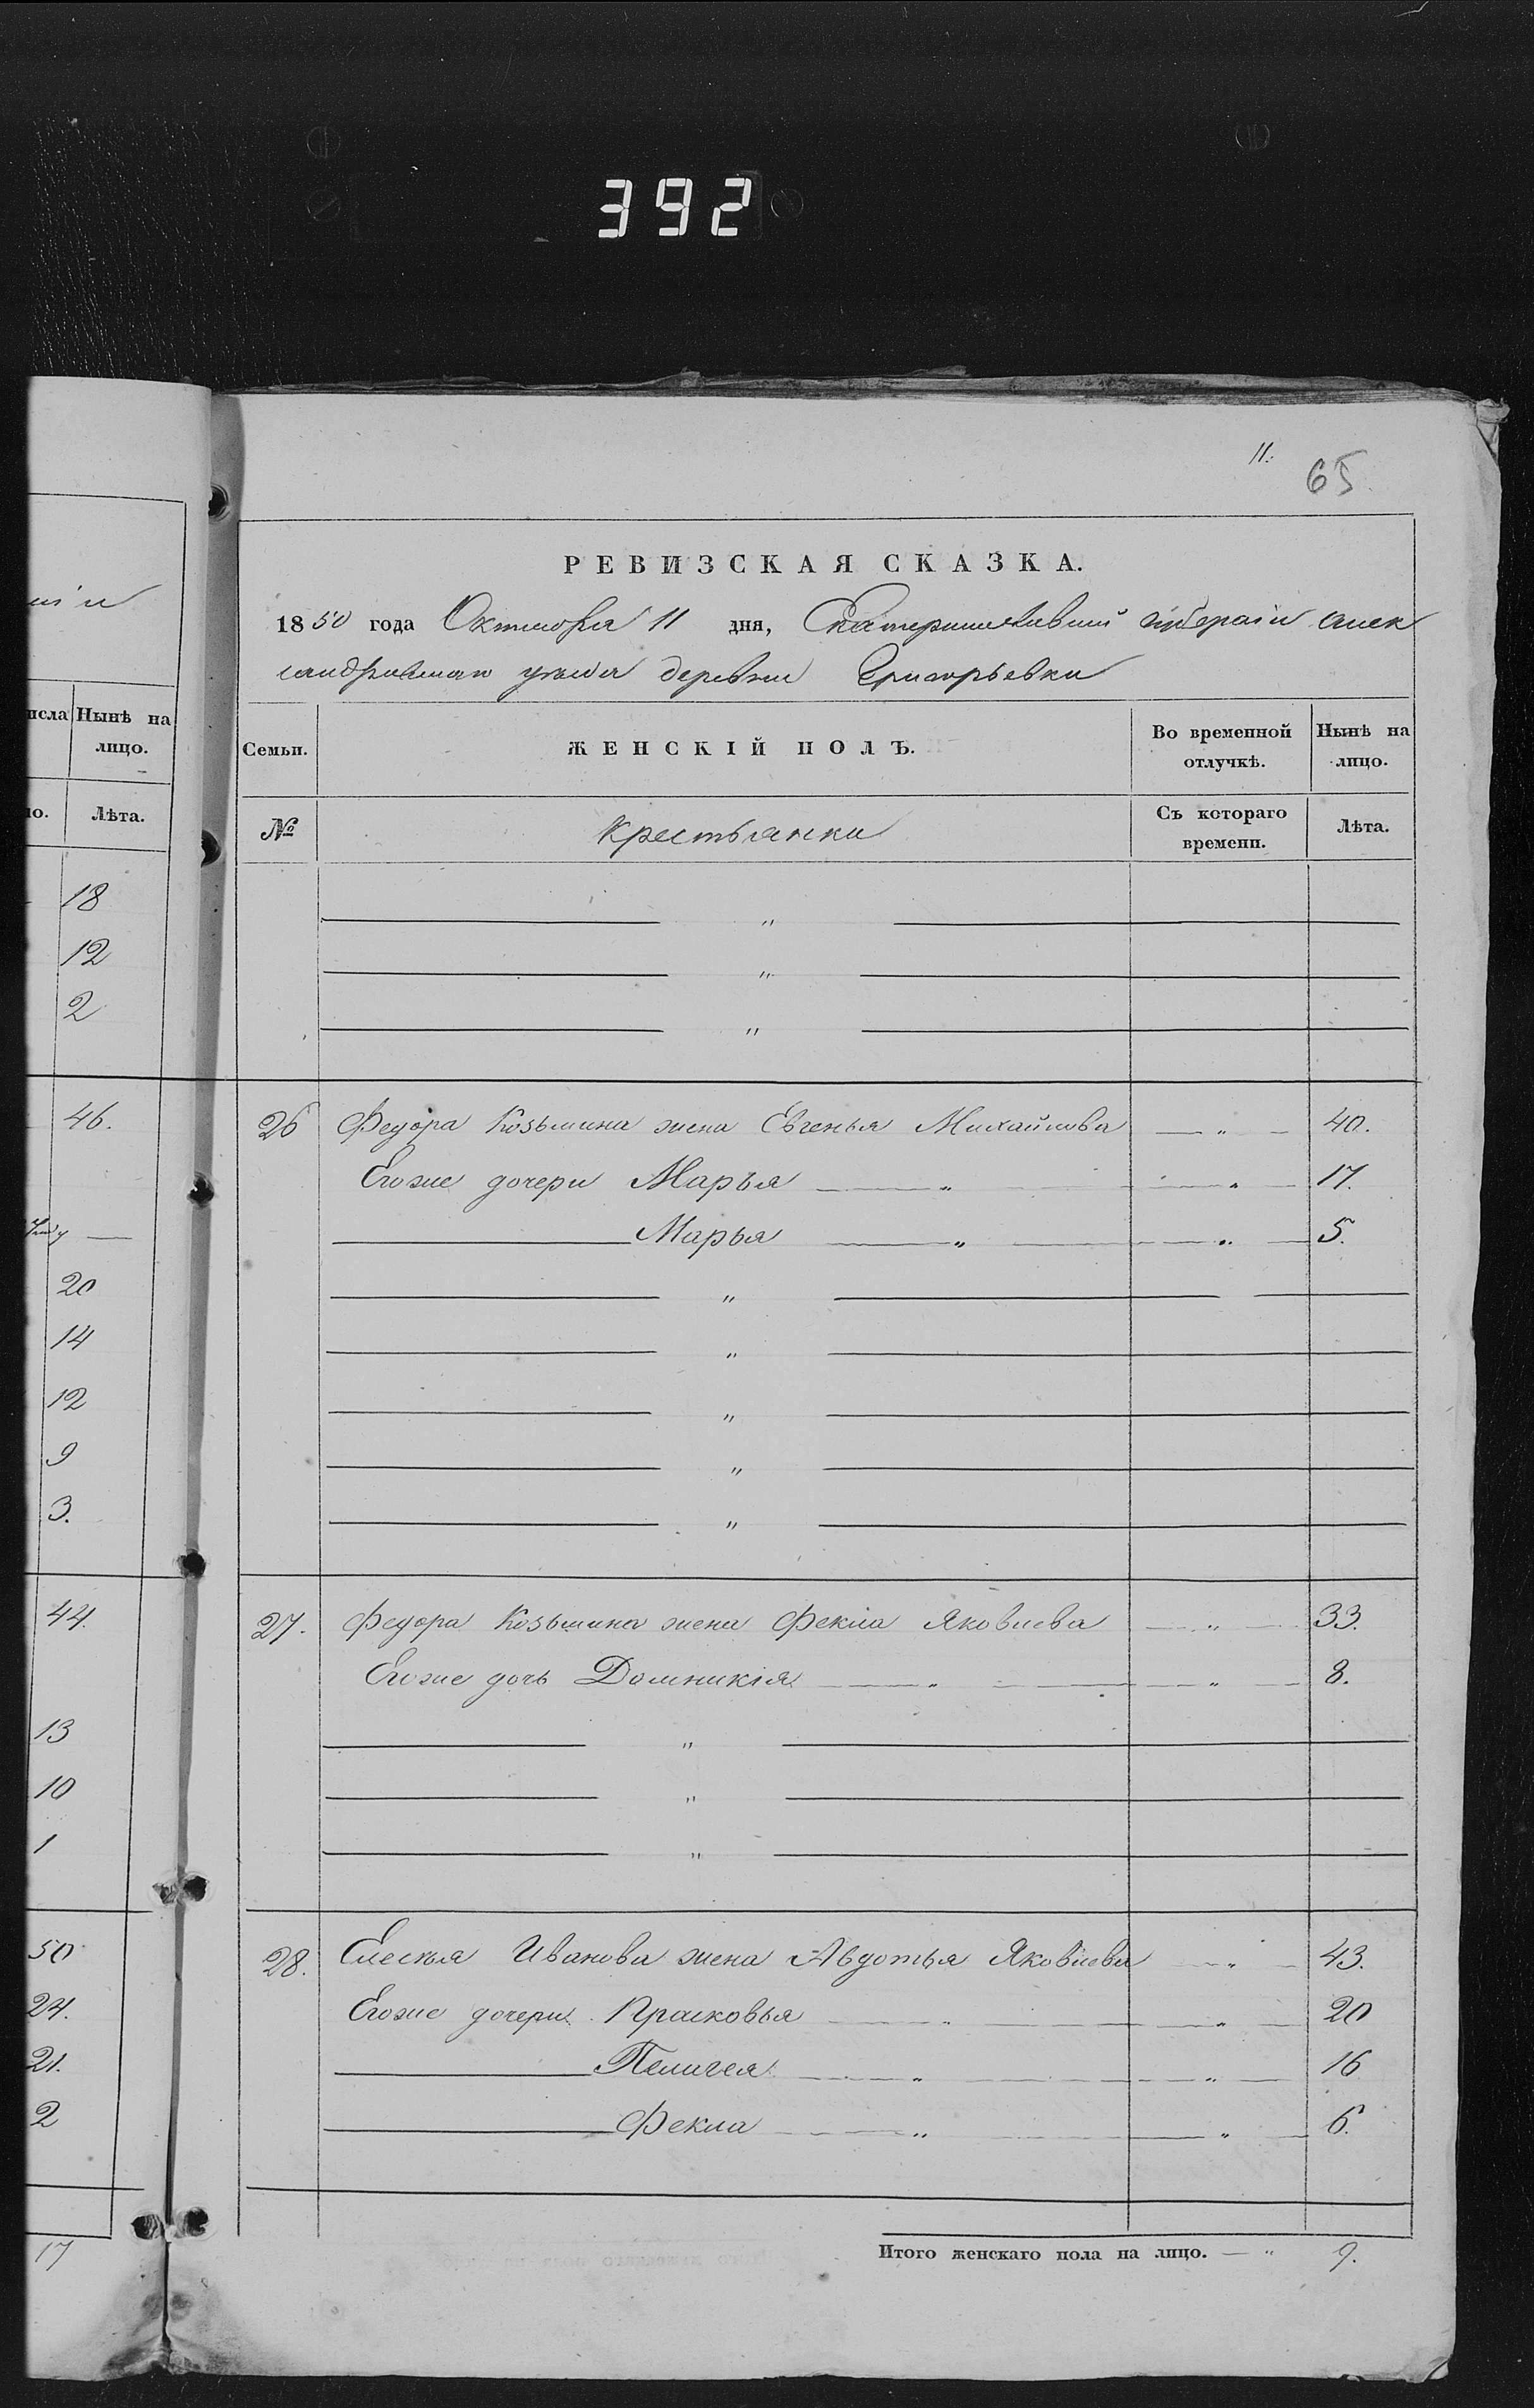 392
ніи
исла Нынѣ на
лицо.
ло. Лѣта.
18
12
2
46.
20
14
12
9
3.
44.
13
10
1
50
24.
21.
2
17
11.
65
РЕВИЗСКАЯ СКАЗКА.
1850 года Октября 11 дня, Екатеринославской губерніи Алек
сандровскаго уѣзда деревни Григорьевки
Семьи. ЖЕНСКІЙ ПОЛЪ. Во временной отлучкѣ. Нынѣ на лицо.
№ Крестьянки Съ котораго времени. Лѣта.
"
"
"
26 Федора Козьмина жена Евгенья Михайлова " 40.
Егоже дочери Марья " " 17.
Марья " " 5.
"
"
"
"
"
27. Федора Козьмина жена Фекла Яковлева " 33.
Егоже дочь Домникія " " 8.
"
"
"
28. Елесѣя Иванова жена Авдотья Яковлева " 43.
Егоже дочери Прасковья " " 20
Пелагея " " 16
Фекла " " 6.
Итого женскаго пола на лицо. — " 9.